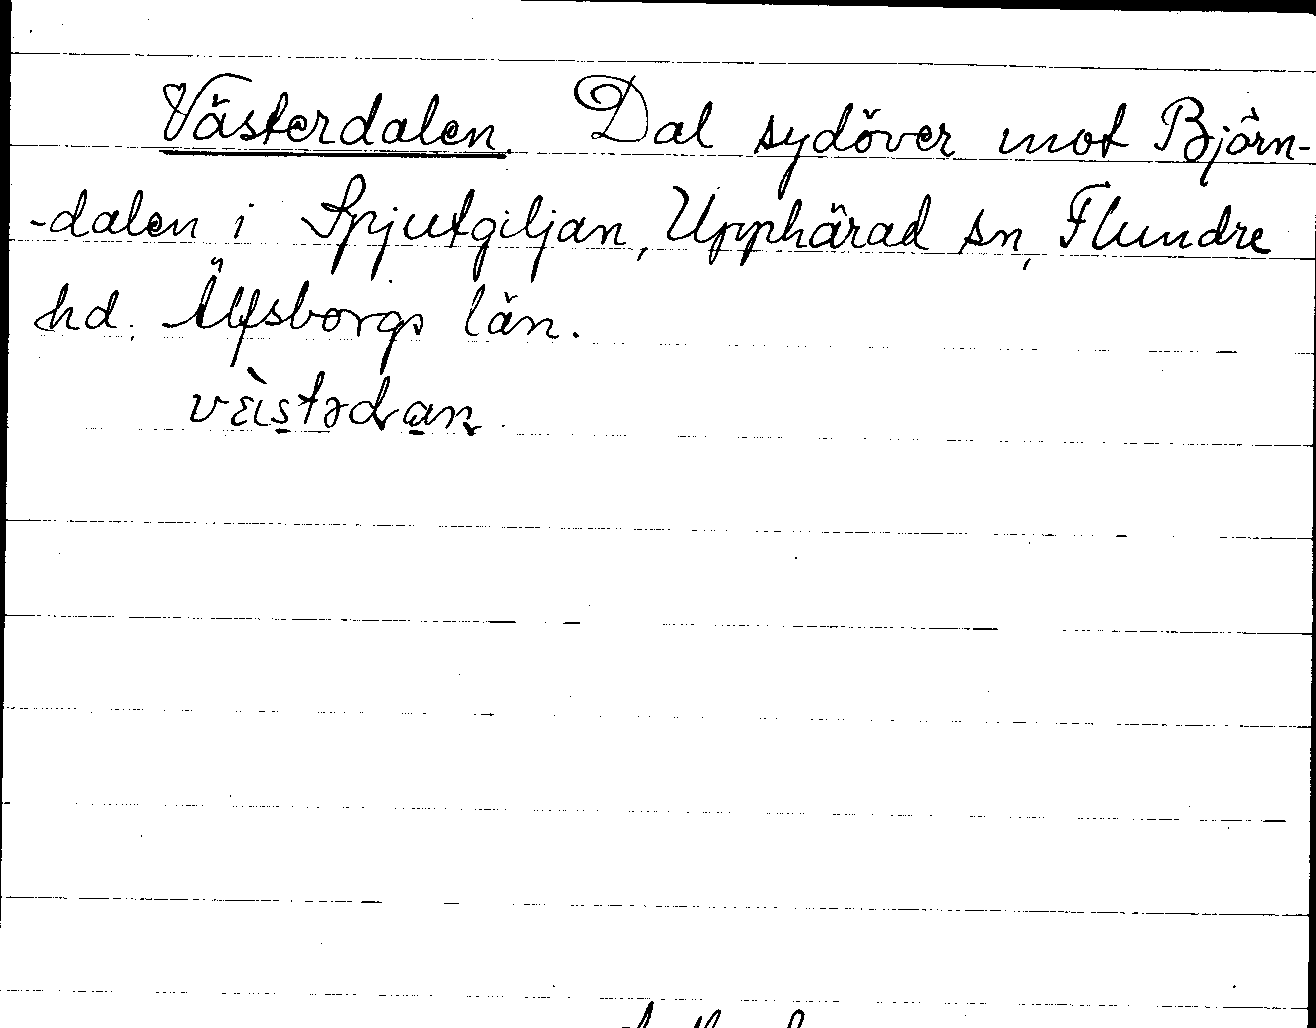 Västerdalen. Dal sydöver mot Björn-
-dalen i Spjutgiljan, Upphärad sn, Flundre
hd. Älfsborgs län.